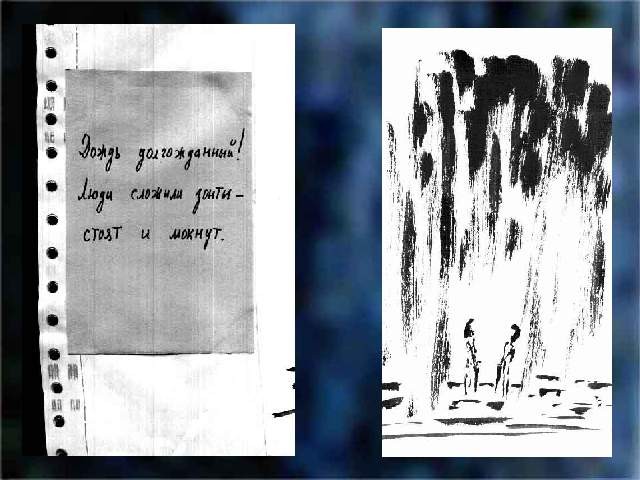 Дождь долгожданный!
Люди сложили зонты –
стоят и мокнут.